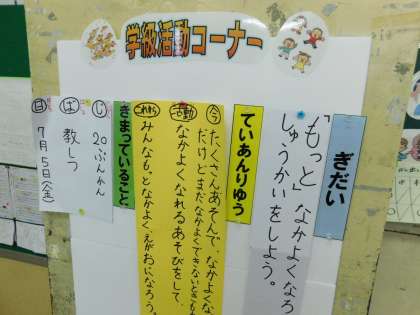 学級活動コーナー
ぎだい
「もっと」なかよくなろ
しゅうかいをしよう。
ていあんりゆう
今 たくさんあそんで、なかよくな
だけどまだなかよくできないときも
活動 なかよくなれるあそびをして、
これから みんなもっとなかよく、えがおになろう。
きまっていること
じ 20ぷんかん
ば 教しつ
日 7月5日(金)